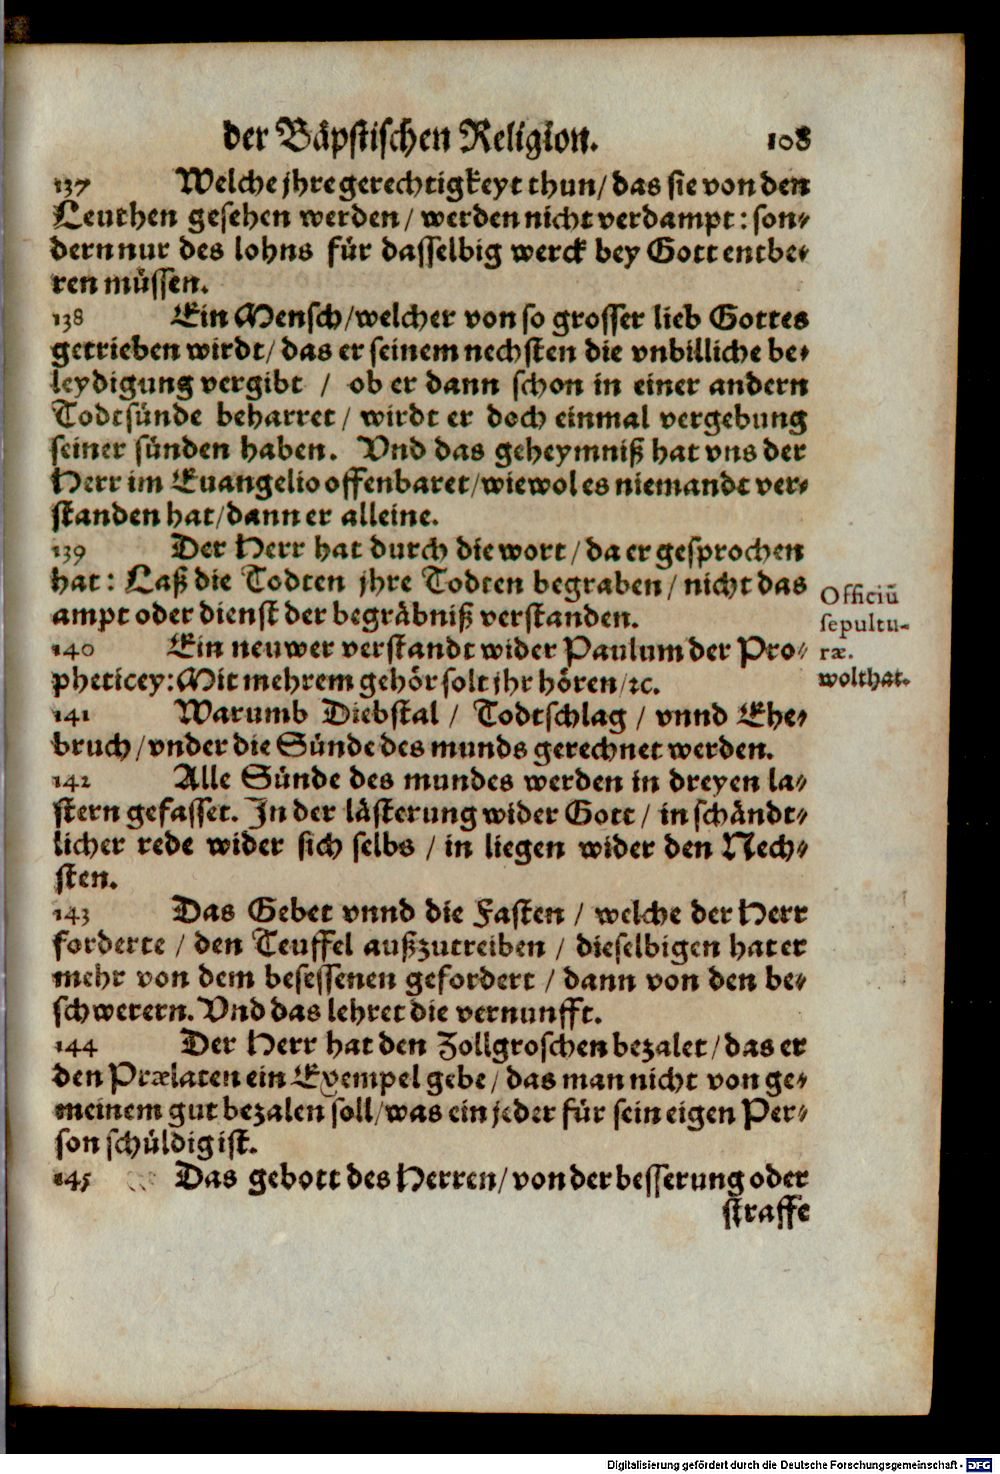 der Bäpstischen Religion. 108
137 Welche jhre gerechtigkeyt thun/ das sie von den
Leuthen gesehen werden/ werden nicht verdampt: son-
dern nur des lohns für dasselbig werck bey Gott entbe-
ren müssen.
138 Ein Mensch/welcher von so grosser lieb Gottes
getrieben wirdt/ das er seinem nechsten die vnbilliche be-
leydigung vergibt / ob er dann schon in einer andern
Todtsünde beharret/ wirdt er doch einmal vergebung
seiner sünden haben. Vnd das geheymniß hat vns der
Herr im Euangelio offenbaret/wiewol es niemandt ver-
standen hat/dann er alleine.
139 Der Herr hat durch die wort/ da er gesprochen
hat: Laß die Todten jhre Todten begraben/ nicht das
ampt oder dienst der begräbniß verstanden.
Officiū
sepultu-
ræ.
wolthat.
140 Ein neuwer verstandt wider Paulum der Pro-
pheticey: Mit mehrem gehör solt jhr hören/ꝛc.
141 Warumb Diebstal / Todtschlag / vnnd Ehe-
bruch/vnder die Sünde des munds gerechnet werden.
142 Alle Sünde des mundes werden in dreyen la-
stern gefasset. In der lästerung wider Gott/ in schändt-
licher rede wider sich selbs / in liegen wider den Nech-
sten.
143 Das Gebet vnnd die Fasten / welche der Herr
forderte / den Teuffel außzutreiben / dieselbigen hat er
mehr von dem besessenen gefordert / dann von den be-
schwerern. Vnd das lehret die vernunfft.
144 Der Herr hat den Zollgroschen bezalet/ das er
den Prælaten ein Exempel gebe/ das man nicht von ge-
meinem gut bezalen soll/was ein jeder für sein eigen Per-
son schüldig ist.
145 Das gebott des Herren/ von der besserung oder
straffe
Digitalisierung gefördert durch die Deutsche Forschungsgemeinschaft - DFG